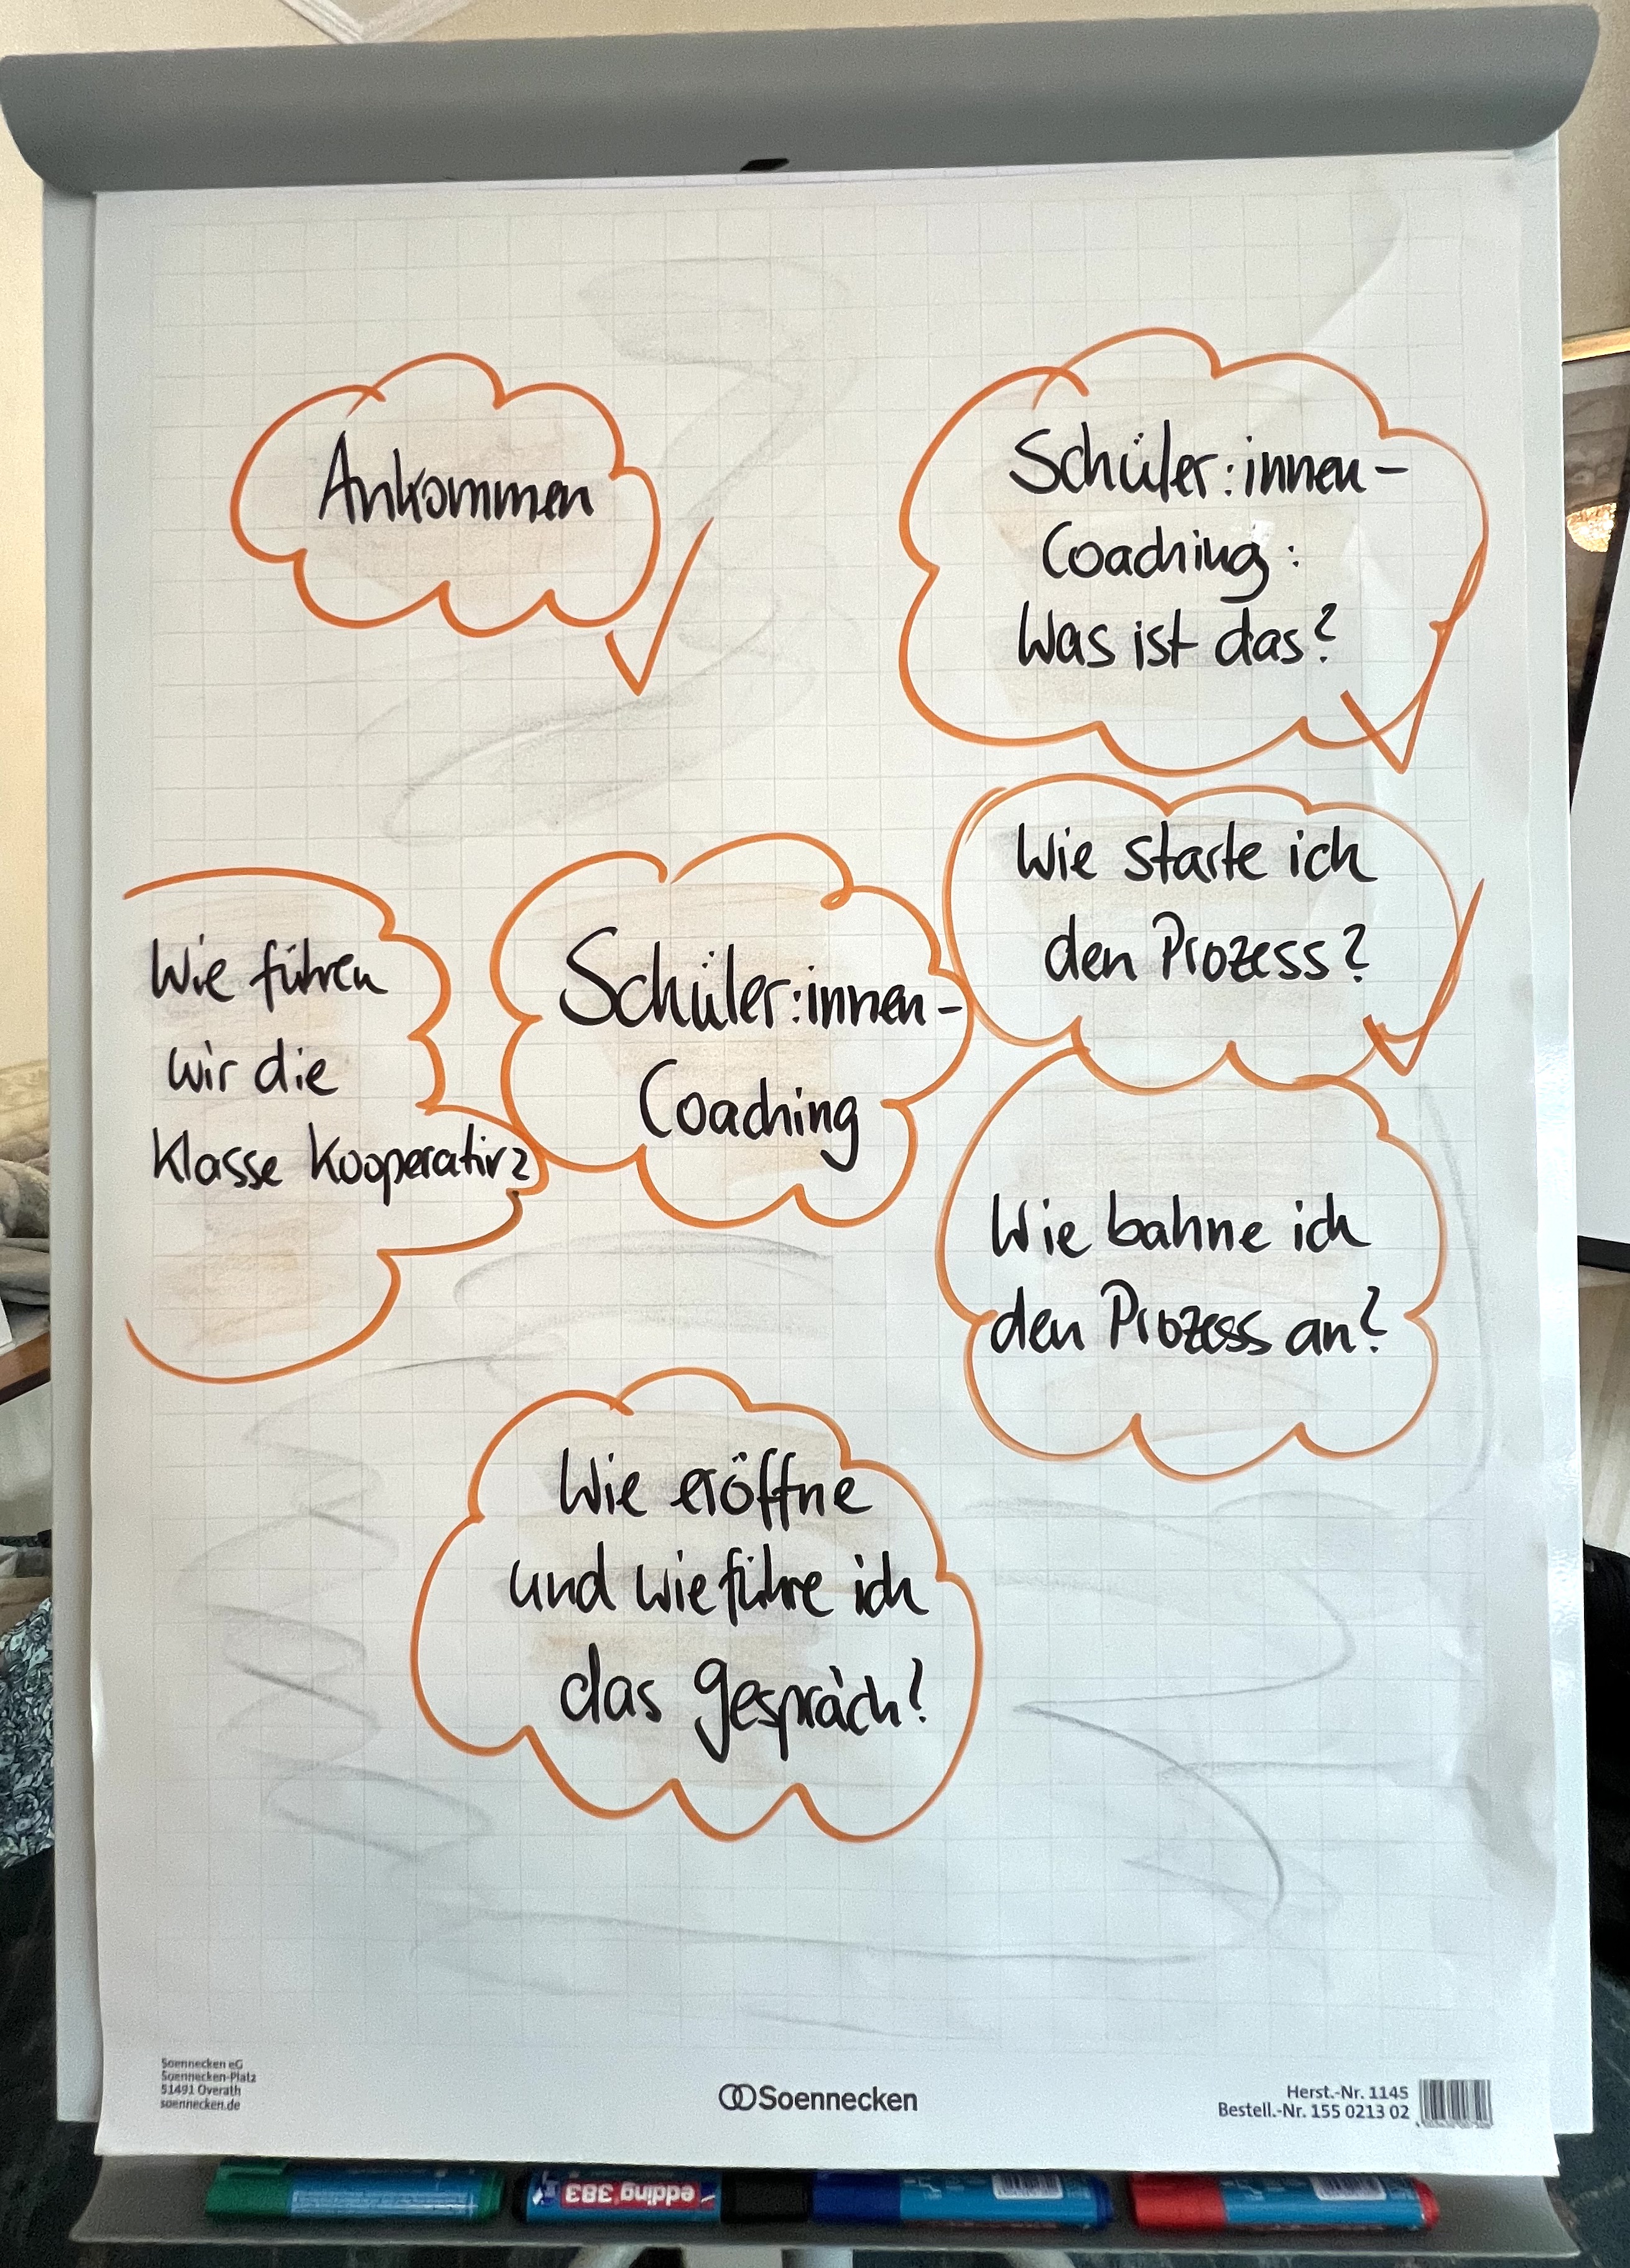 Ankommen
Schüler:innen-
Coaching:
Was ist das?
Wie starte ich
den Prozess?
Wie führen
wir die
Klasse kooperativ?
Schüler:innen-
Coaching
Wie bahne ich
den Prozess an?
Wie eröffne
und wie führe ich
das gespräch?
Soennecken eG
Soennecken-Platz
51491 Overath
soennecken.de
Soennecken
Herst.-Nr. 1145
Bestell.-Nr. 155 0213 02
edding 383